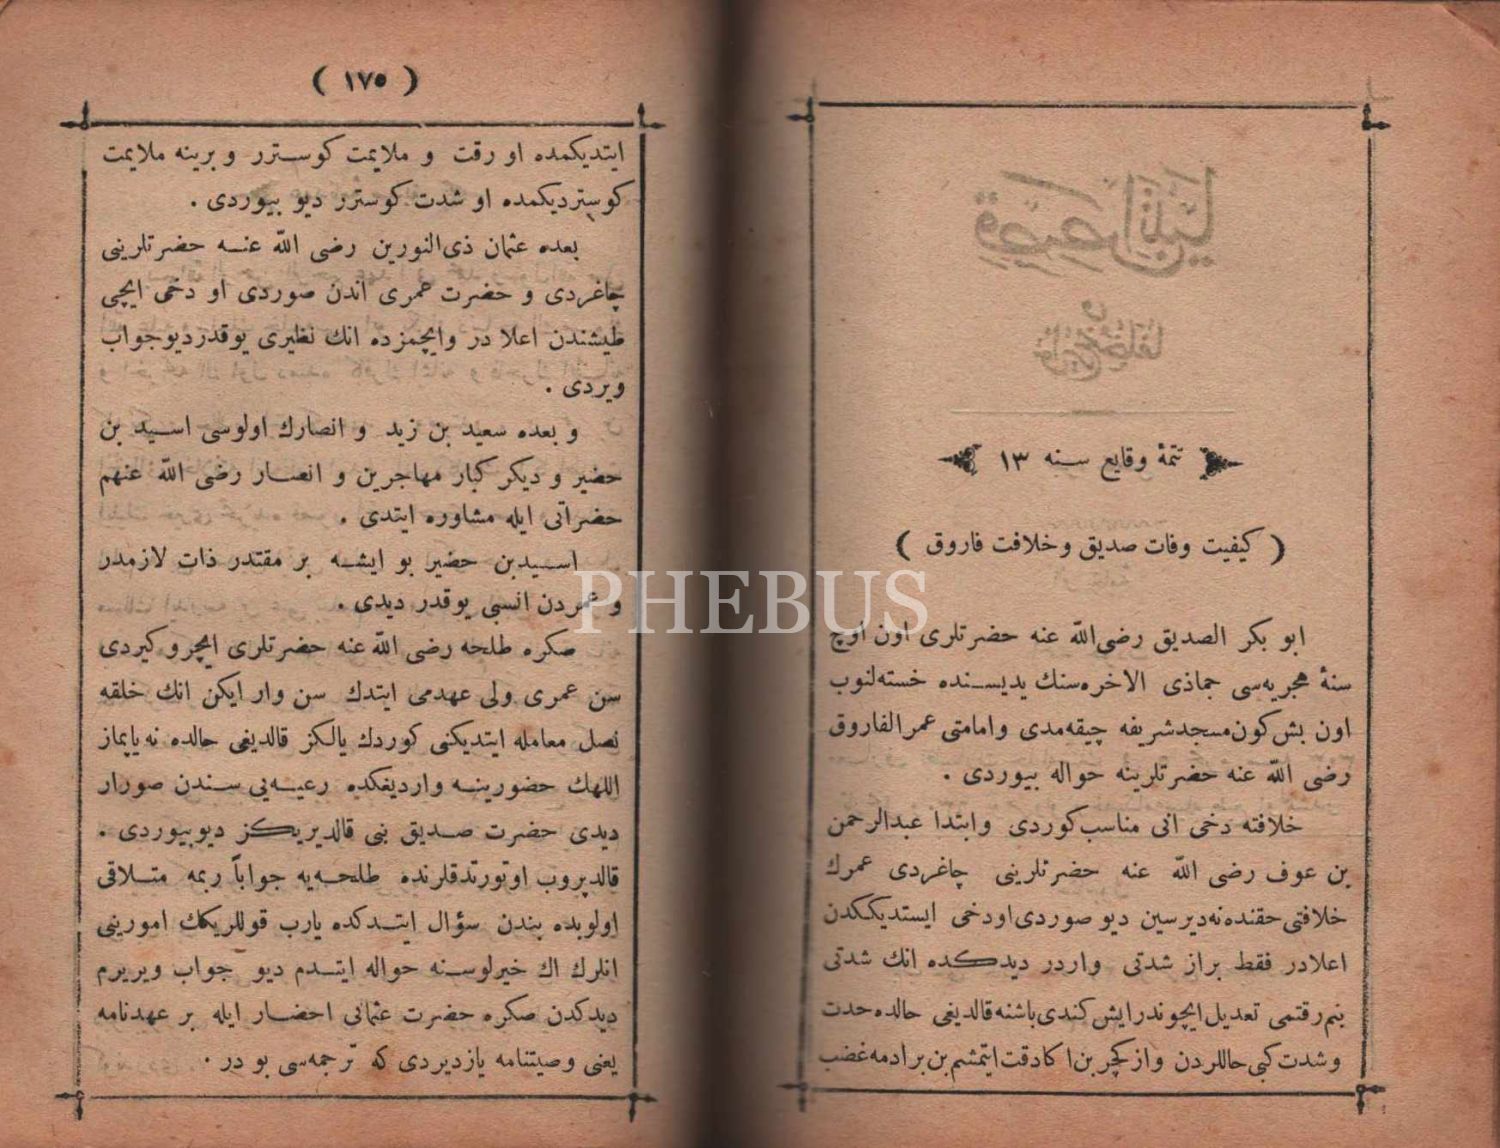 تتمهٔ وقایع سنه ١٣
( کیفیت وفات صدیق و خلافت فاروق )
ابو بکر الصدیق رضی الله عنه حضرتلری اون اوچ
سنهٔ هجریه‌سی جماذی الاخره‌سنك یدیسنده خسته‌لنوب
اون بش کون مسجد شریفه چیقه‌مدی و امامتی عمر الفاروق
رضی الله عنه حضرتلرینه حواله بیوردی .
خلافته دخی انی مناسب کوردی و ابتدا عبدالرحمن
بن عوف رضی الله عنه حضرتلرینی چاغردی عمرك
خلافتی حقنده نه دیرسین دیو صوردی او دخی ایستدیککدن
اعلادر فقط براز شدتی واردر دیدکده انك شدتی
بنم رقتمی تعدیل ایچوندر ایش کندی باشنه قالدیغی حالده حدت
و شدت کبی حاللردن واز کچر بن اکا دقت ایتمشم بن بر ادمه غضب
( ١٧٥ )
ایتدیکمده او رقت و ملایمت کوسترر و برینه ملایمت
کوستردیکمده او شدت کوسترر دیو بیوردی .
بعده عثمان ذی‌النورین رضی الله عنه حضرتلرینی
چاغردی و حضرت عمری اندن صوردی او دخی ایچی
طیشندن اعلا در و ایچمزده انك نظیری یوقدر دیو جواب
ویردی .
و بعده سعید بن زید و انصارك اولوسی اسید بن
حضیر و دیکر کبار مهاجرین و انصار رضی الله عنهم
حضراتی ایله مشاوره ایتدی .
اسیدبن حضیر بو ایشه بر مقتدر ذات لازمدر
و عمردن انسبی یوقدر دیدی .
صکره طلحه رضی الله عنه حضرتلری ایچرو کیردی
سن عمری ولی عهدمی ایتدك سن وار ایکن انك خلقه
نصل معامله ایتدیکنی کوردك یالکز قالدیغی حالده نه یاپماز
اللهك حضورینه واردیغکده رعیه‌یی سندن صورار
دیدی حضرت صدیق بنی قالدیریکز دیو بیوردی .
قالدیروب اوتورتدقلرنده طلحه‌یه جواباً ربمه متلاقی
اولوبده بندن سؤال ایتدکده یارب قوللریکك امورینی
انلرك اك خیرلوسنه حواله ایتدم دیو جواب ویریرم
دیدکدن صکره حضرت عثمانی احضار ایله بر عهدنامه
یعنی وصیتنامه یازدیردی که ترجمه‌سی بو در .
PHEBUS